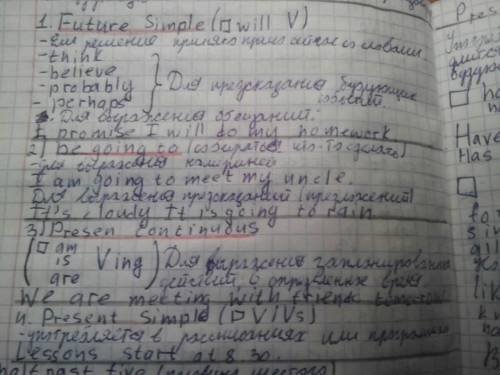 1. Future Simple (□ will V)
- Если решение принято прямо сейчас со словами.
- think
- believe
- probably
- perhaps
Для предсказания будующих событий.
- Для выражения обещаний.
I promise I will do my homework
2) be going to (собираться что-то сделать)
- для выражения намерений
I am going to meet my uncle.
Для выражения предсказаний
It's cloudy It is going to rain
3) Presen Continuous
(□ am is are Ving) Для выражения запланированных
действий, в определенное время.
We are meeting with friend tomorrow
4. Present Simple (□ V/Vs)
- употребляется в расписаниях или программах
Lessons start at 8 30.
half past five (половина шестого)
Pres
Have
Has